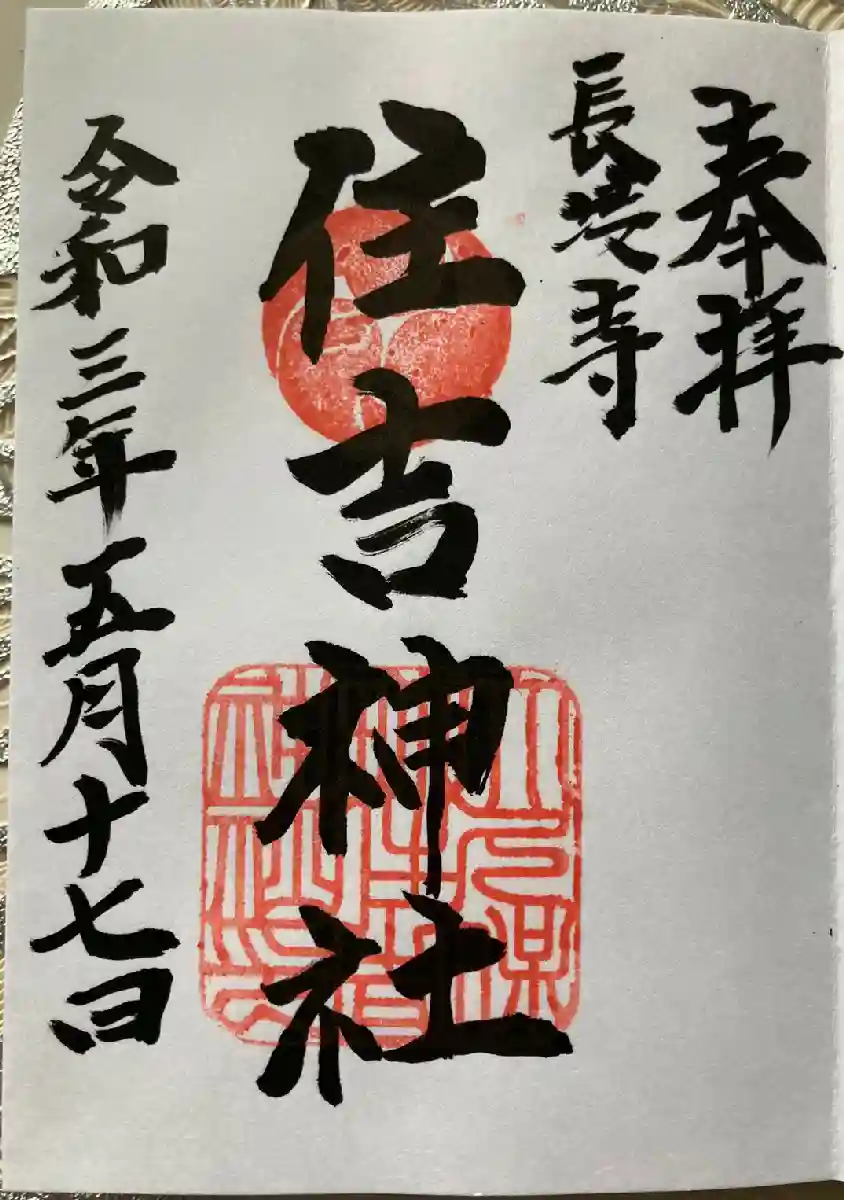 奉拝
住吉神社
令和三年五月十七日